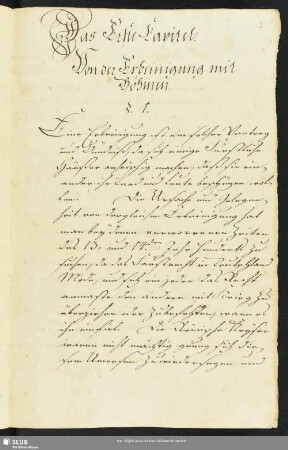 Das Erste Capitel
Von der Erbeinigung mit
Böhmen
§. 1.
Eine Erbeinigung ist ein solcher Vertrag
und Bündniß, da sich einige Fürstliche
Häußer anheischig machen, daß sie ein-
ander ihr Land und Leute beschützen wol-
len. Die Ursache und Gelegen-
heit von dergleichen Erbeinigung hat
man bey denen verworrenen Zeiten
des 13. und 14ten Jahr hunderts zu
suchen, da das Faustrecht in
Mode, und sich ein jeder das Recht
anmaßte den andern mit Krieg zu
überziehen oder zu befehden, wann es
ihm einfiel. Die Kayser
waren nicht mächtig genug sich die-
sem Unwesen zu wiedersetzen und
SLUB
Wir führen Wissen.